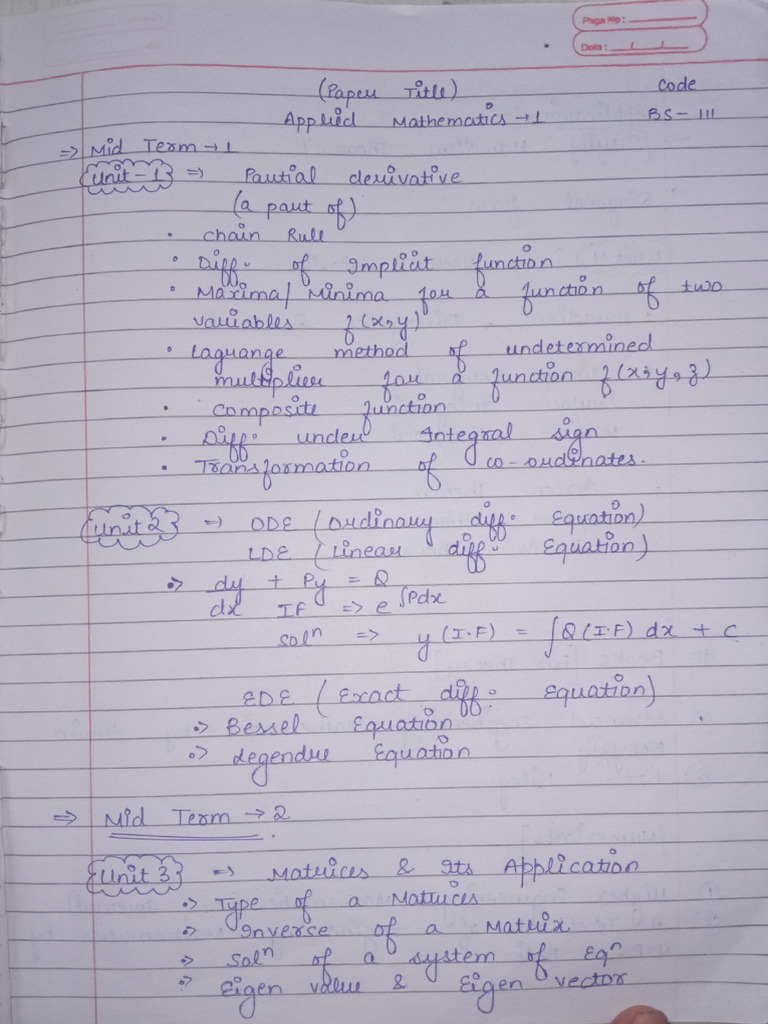 Page No :
Date :
(Paper Title) Code
Applied Mathematics → 1 BS - 111
⇒ Mid Term → 1
Unit - 1 ⇒ Partial derivative
(a part of)
• Chain Rule
• Diff. of Implicit function
• Maxima / Minima for a function of two
variables f(x,y)
• Lagrange method of undetermined
multiplier for a function f(x,y,z)
• Composite function
• Diff. under Integral sign
• Transformation of co-ordinates.
Unit 2 ⇒ ODE (Ordinary diff. Equation)
LDE (Linear diff. Equation)
⇒ dy/dx + Py = Q
IF ⇒ e^∫Pdx
solⁿ ⇒ y (I.F) = ∫Q (I.F) dx + c
EDE (Exact diff. Equation)
⇒ Bessel Equation
⇒ Legendre Equation
⇒ Mid Term → 2
Unit 3 ⇒ Matrices & Its Application
⇒ Type of a Matrices
⇒ Inverse of a Matrix
⇒ Solⁿ of a system of Eqⁿ
⇒ Eigen value & Eigen vector